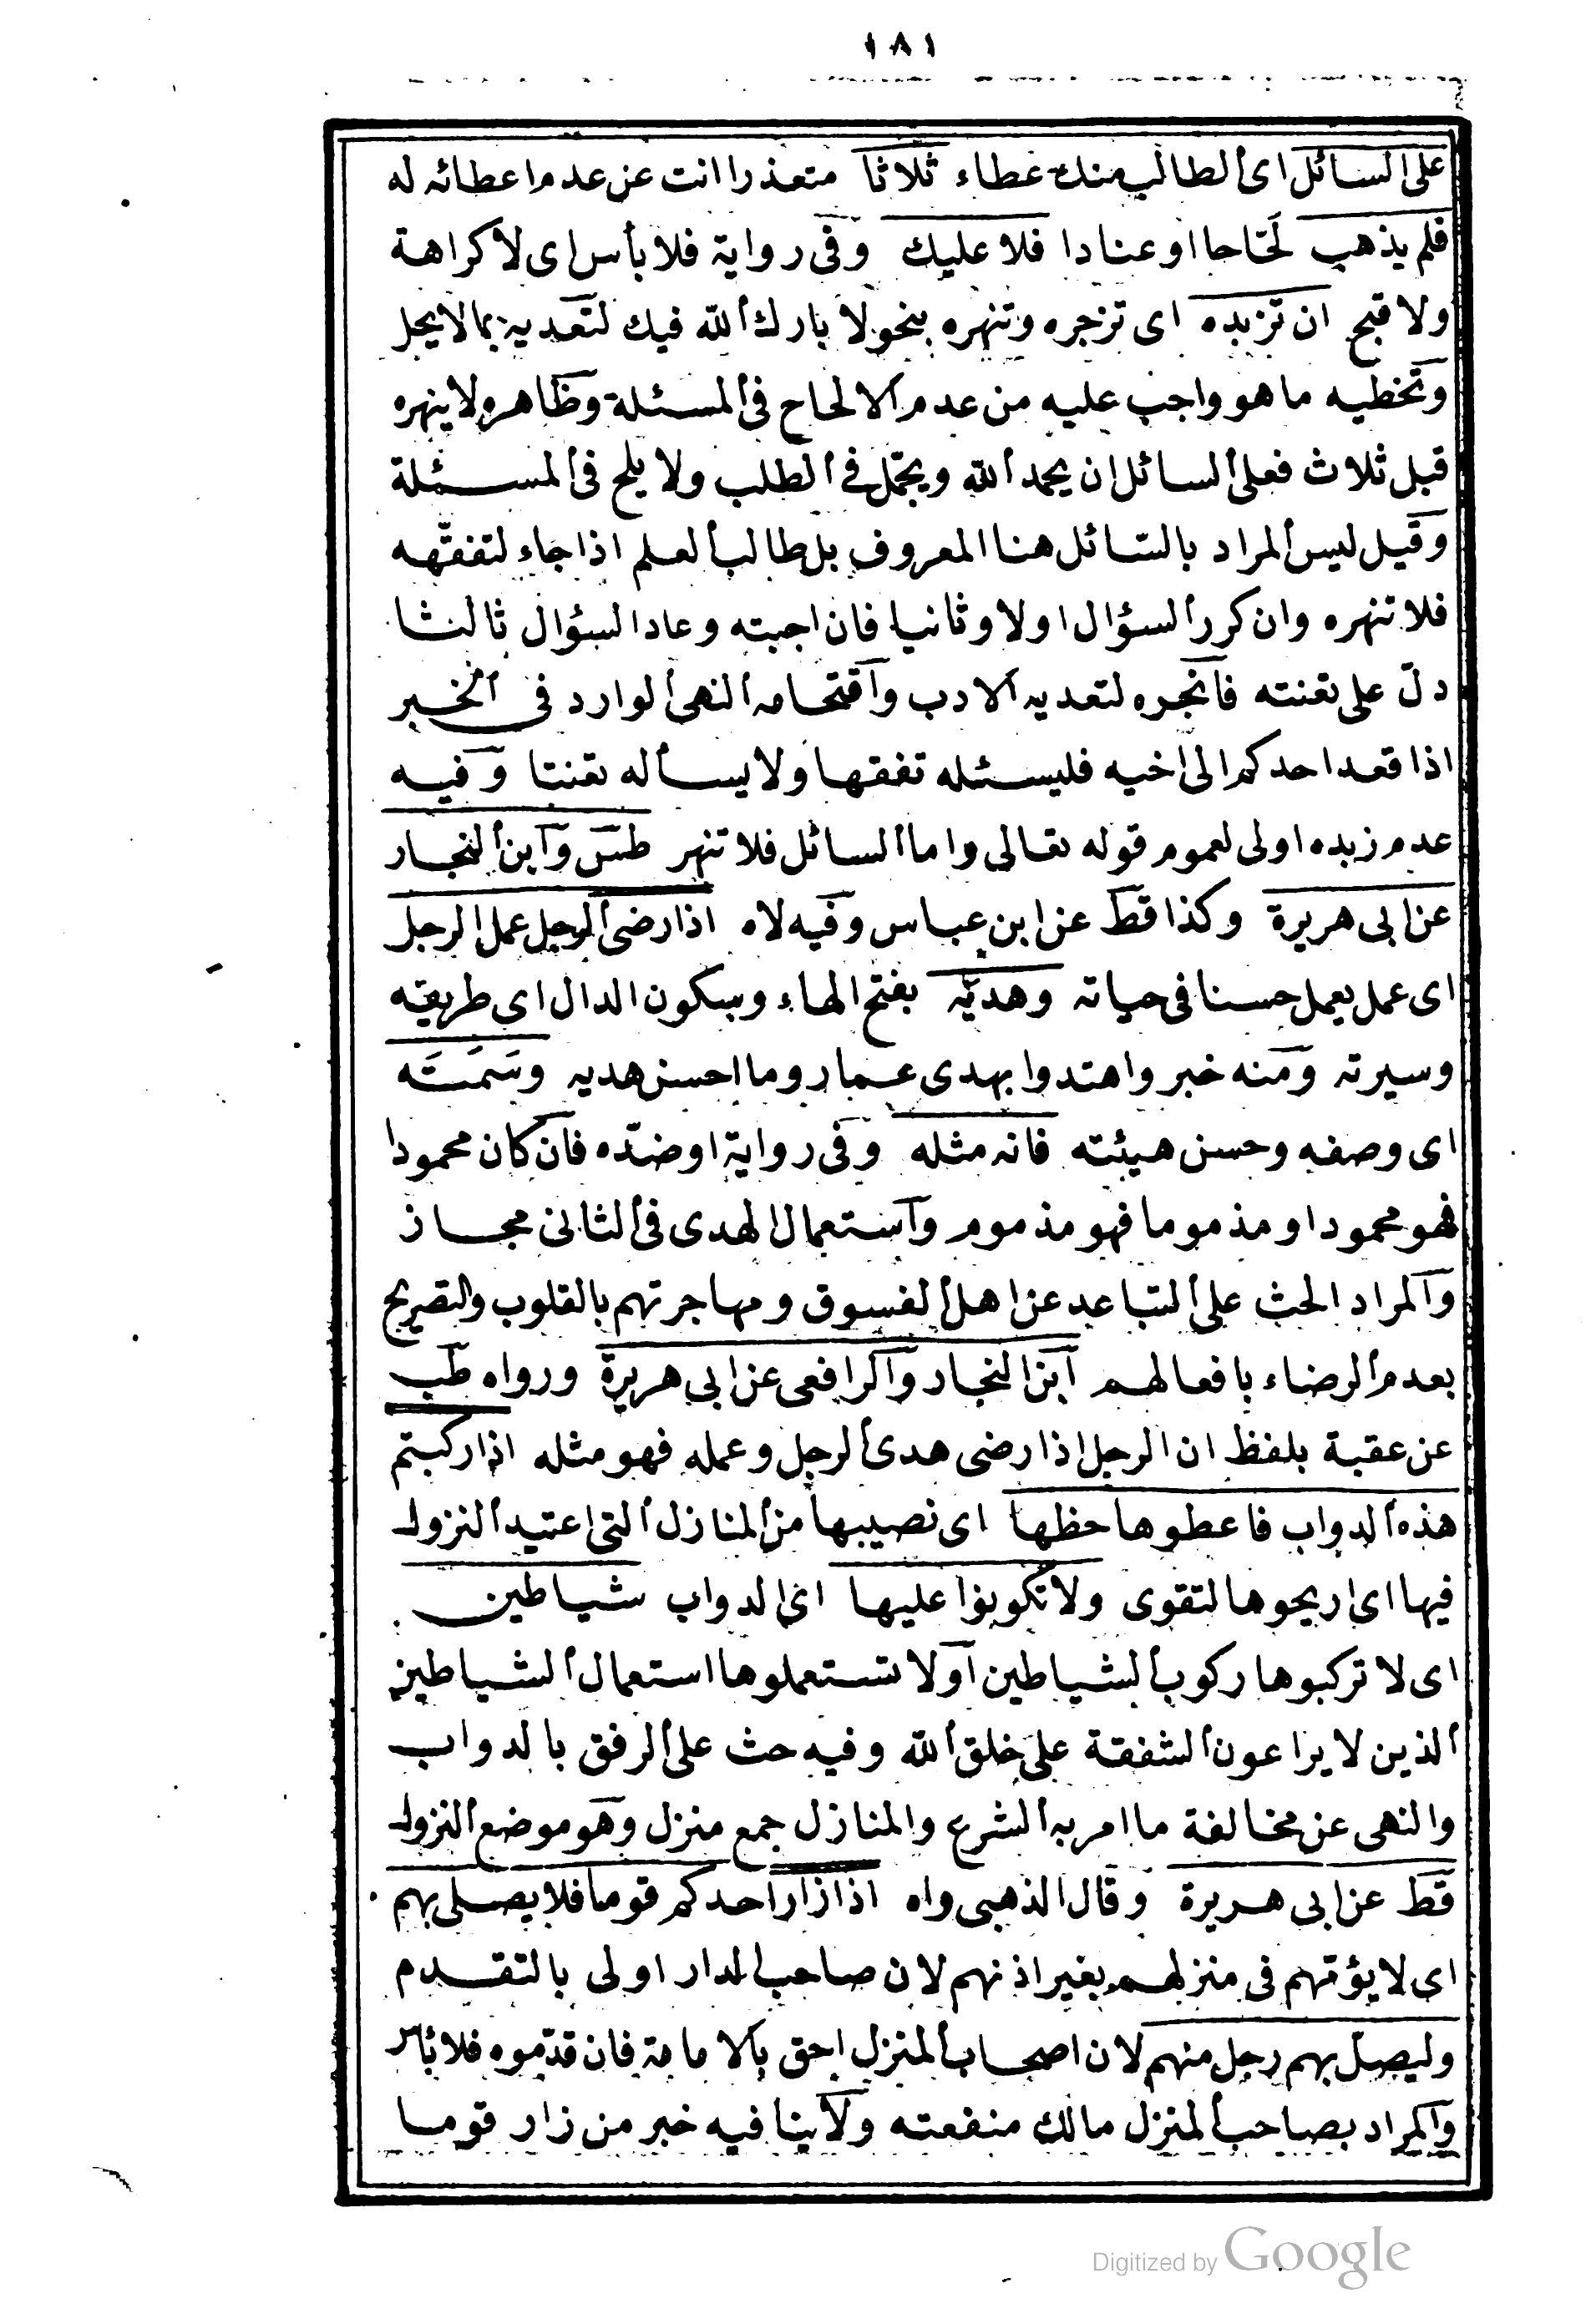 ١٨١
على السائل اى الطالب منك عطاء ثلاثا متعذرا انت عن عدم اعطائه له
فلم يذهب لحّاحا او عنادا فلا عليك وفى رواية فلا بأس اى لا كراهة
ولا قبح ان تزبده اى تزجره وتنهره بنحو لا بارك الله فيك لتعديه بما لا يحل
وتخطيه ما هو واجب عليه من عدم الالحاح فى المسئلة وظاهره لا ينهره
قبل ثلاث فعلى السائل ان يحمد الله ويجمّل فى الطلب ولا يلح فى المسئلة
وقيل ليس المراد بالسّائل هنا المعروف بل طالب العلم اذا جاء لتفقّهه
فلا تنهره وان كرر السؤال اولا وثانيا فان اجبته وعاد السؤال ثالثا
دلّ على تعنته فانجره لتعديه الادب واقتحامه النهى الوارد فى الخبر
اذا قعد احدكم الى اخيه فليسئله تفقها ولا يسأله تعنتا وفيه
عدم زبده اولى لعموم قوله تعالى واما السائل فلا تنهر طس وابن النجار
عن ابى هريرة وكذا قط عن ابن عباس وفيه لاه اذا رضى الرجل عمل الرجل
اى عمل يعمل حسنا فى حياته وهديه بفتح الهاء وسكون الدال اى طريقته
وسيرته ومنه خبر واهتدوا بهدى عمار وما احسن هديه وسَمتَه
اى وصفه وحسن هيئته فانه مثله وفى رواية او ضدّه فان كان محمودا
فهو محمود او مذموما فهو مذموم واستعمال الهدى فى الثانى مجاز
والمراد الحث على التباعد عن اهل الفسوق ومهاجرتهم بالقلوب والتصريح
بعدم الرضاء بافعالهم ابن النجار والرافعى عن ابى هريرة ورواه طب
عن عقبة بلفظ ان الرجل اذا رضى هدى الرجل وعمله فهو مثله اذا ركبتم
هذه الدواب فاعطوها حظها اى نصيبها من المنازل التى اعتيد النزول
فيها اى اريحوها لتقوى ولا تكونوا عليها اى الدواب شياطين
اى لا تركبوها ركوب الشياطين او لا تستعملوها استعمال الشياطين
الذين لا يراعون الشفقة على خلق الله وفيه حث على الرفق بالدواب
والنهى عن مخالفة ما امر به الشرع والمنازل جمع منزل وهو موضع النزول
قط عن ابى هريرة وقال الذهبى واه اذا زار احدكم قوما فلا يصلى بهم
اى لا يؤمهم فى منزلهم بغير اذنهم لان صاحب الدار اولى بالتقدم
وليصل بهم رجل منهم لان اصحاب المنزل احق بالامامة فان قدّموه فلا بأس
والمراد بصاحب المنزل مالك منفعته ولا ينافيه خبر من زار قوما
Digitized by Google